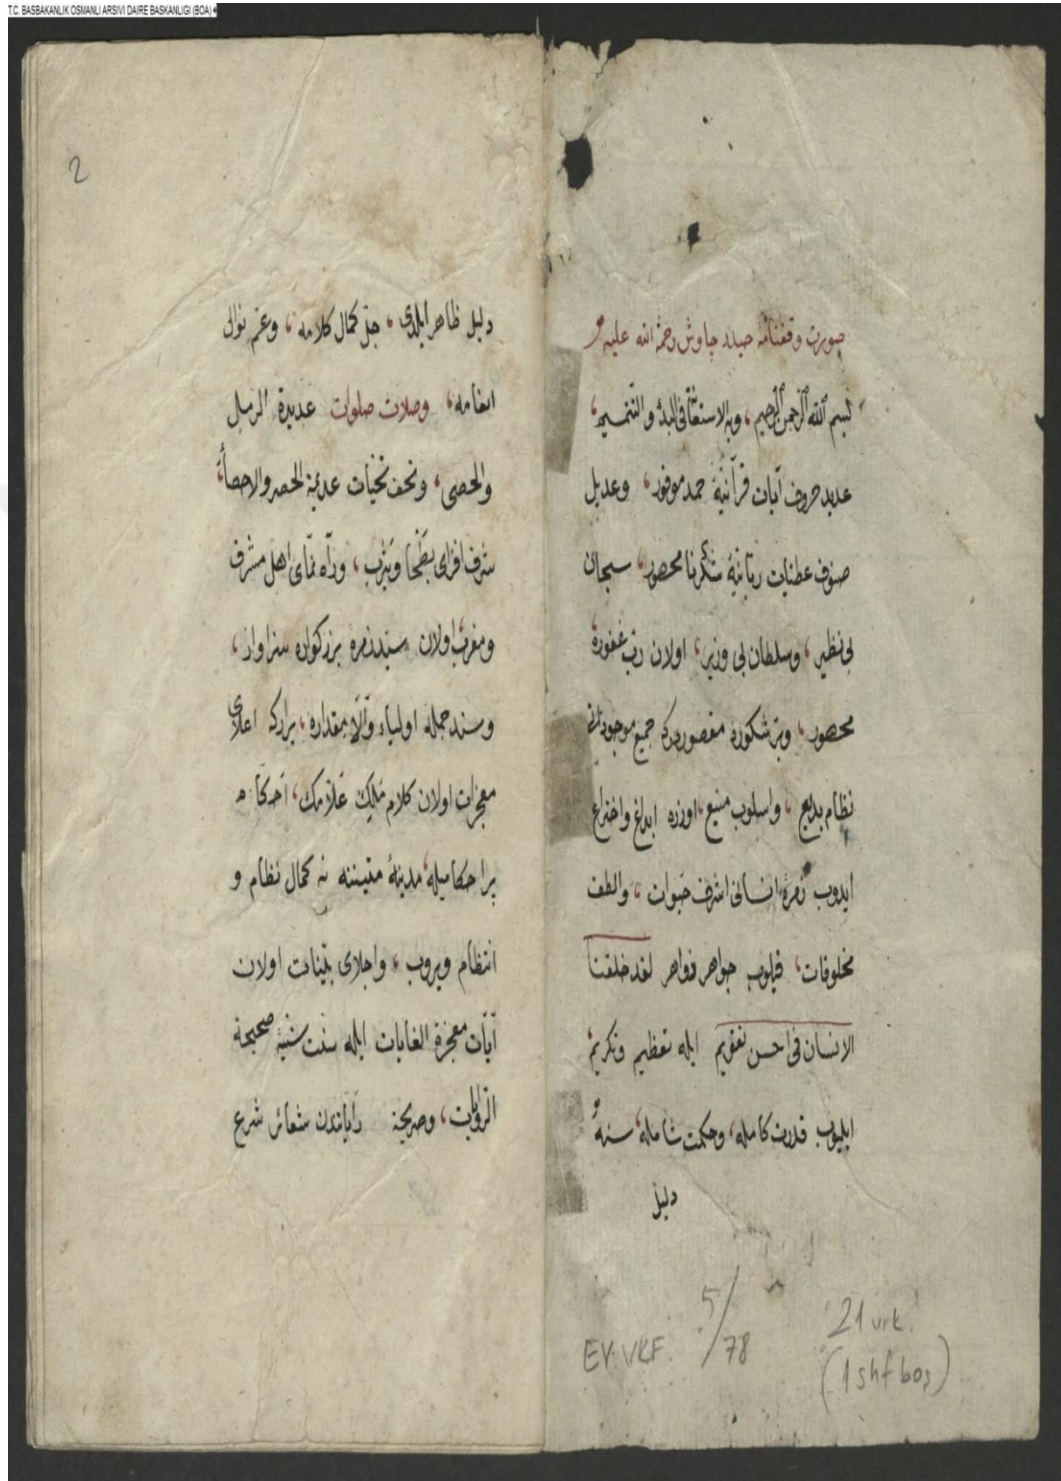 T.C. BASBAKANLIK OSMANLI ARSIVI DAIRE BASKANLIGI (BOA)
صورت وقفنامه حيدر چاوش رحمة الله عليه
بسم الله الرحمن الرحيم وبه الاستعانة فی البدء والتتميم
عديد حروف آيات قرآنيه حمد موفور وعديل
صنوف عطيات ربانيه شكر نامحصور سبحان
بی نظير وسلطان بی وزير اولان رب غفوره
محصور جميع موجوداتی
نظام بديع واسلوب منيع اوزره ابداع واختراع
ايدوب زمره انسانی اشرف حيوات والطف
مخلوقات قيلوب جواهر زواهر لقد خلقنا
الانسان فی احسن تقويم ايله تعظيم وتكريم
ايليوب قدرت كامله وحكمت شامله سنه
دليل
EV. VKF. 5/78
21 vrk.
(1 shf boş)
2
دليل ظاهر ايلدی جل كمال كلامه وعم نوالی
انعامه وصلات صلوات عديدة الرمل
والحصی وتحف تحيات عديمة الحصر والاحصا
شرف افزای بطحا ويثرب وراه نمای اهل مشرق
ومغرب اولان سيد زمره بزركواره سزاوار
وسند جمله اولياء مقداره اعلای
معجزات اولان كلام مليك علامك احكام
پر احكاميله مدينه متينه كمال نظام و
انتظام ويروب واجلای بينات اولان
آيات معجزة الغايات ايله سنت سنيه صحيحة
الروايات وصريحة شعائر شرع